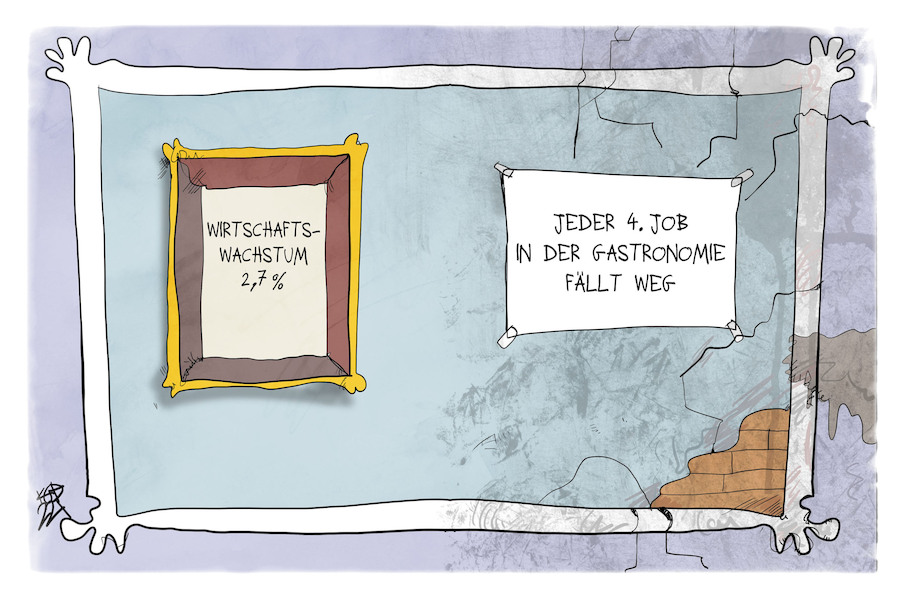 WIRTSCHAFTS-
WACHSTUM
2,7%
JEDER 4. JOB
IN DER GASTRONOMIE
FÄLLT WEG